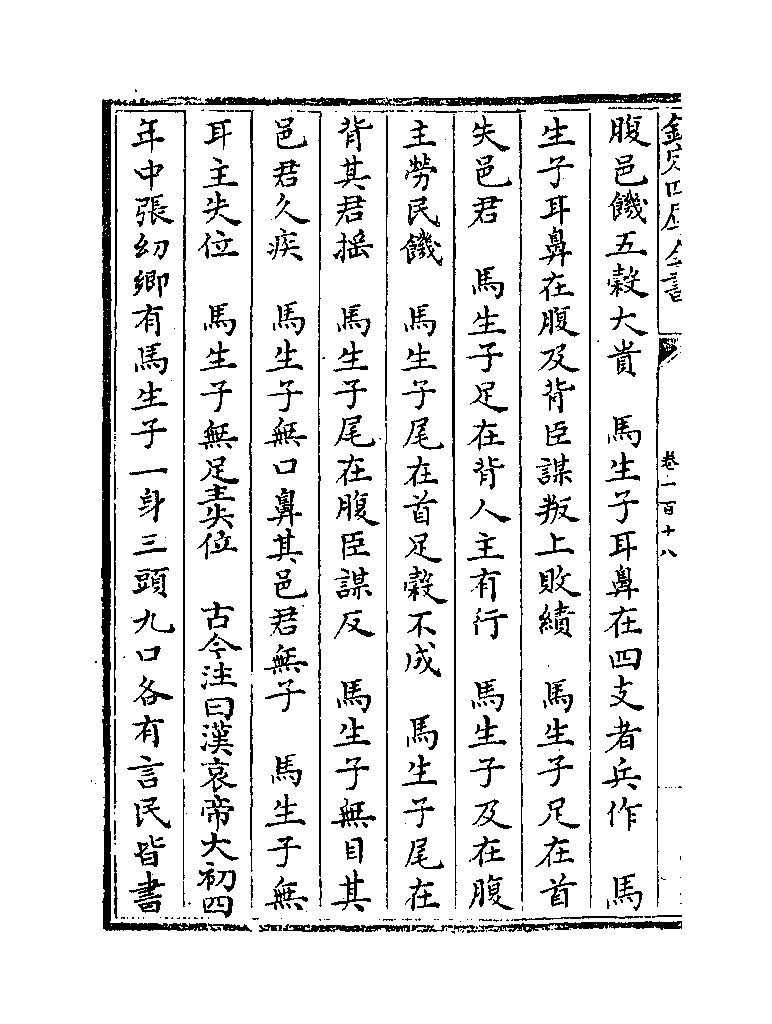 欽定四庫全書
卷一百十八
腹邑饑五穀大貴　馬生子耳鼻在四支者兵作　馬
生子耳鼻在腹及背臣謀叛上敗績　馬生子足在首
失邑君　馬生子足在背人主有行　馬生子及在腹
主勞民饑　馬生子尾在首足穀不成　馬生子尾在
背其君揺　馬生子尾在腹臣謀反　馬生子無目其
邑君久疾　馬生子無口鼻其邑君無子　馬生子無
耳主失位　馬生子無足主失位　古今注曰漢哀帝大初四
年中張幼卿有馬生子一身三頭九口各有言民皆書